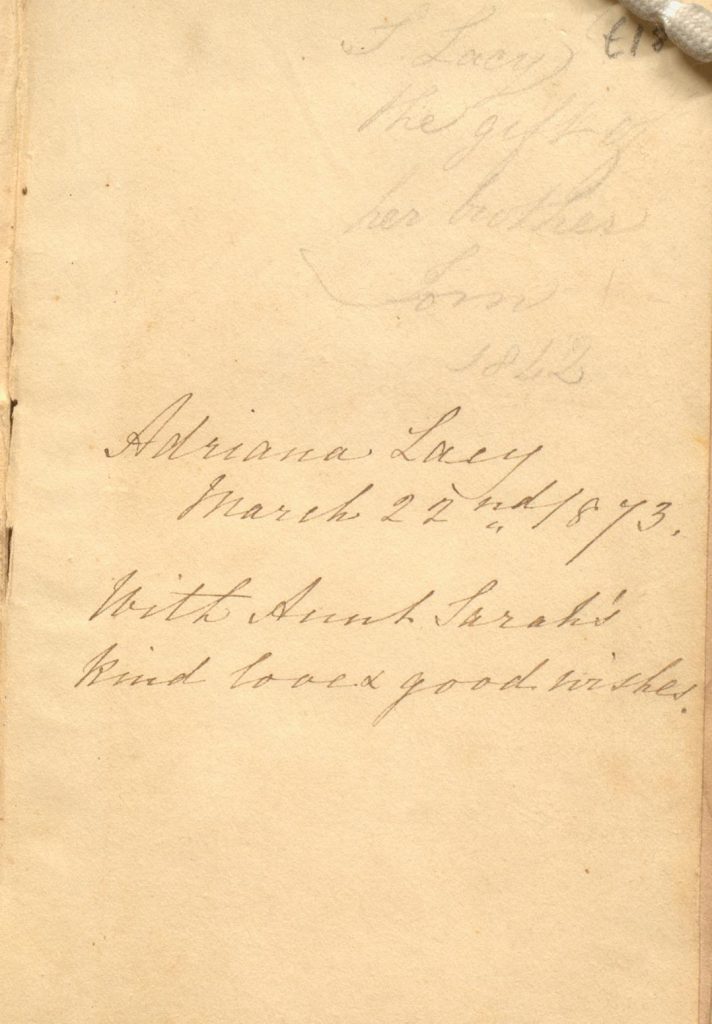 S. Lacy
the gift of
her brother
Tom
1842
Adriana Lacy
March 22nd 1873.
With Aunt Sarah's
kind love & good wishes.